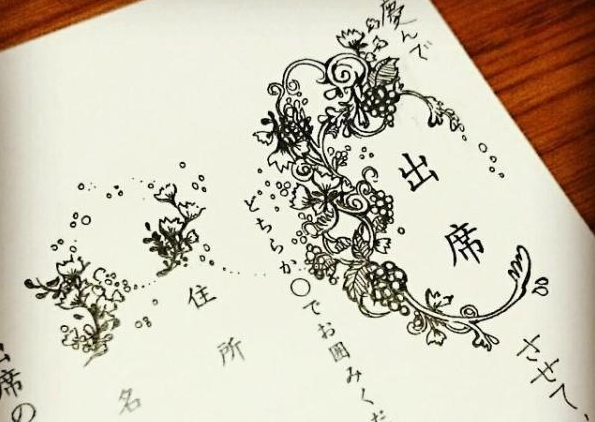 慶んで
出席
どちらか〇でお囲みくだ
住所
名
席の